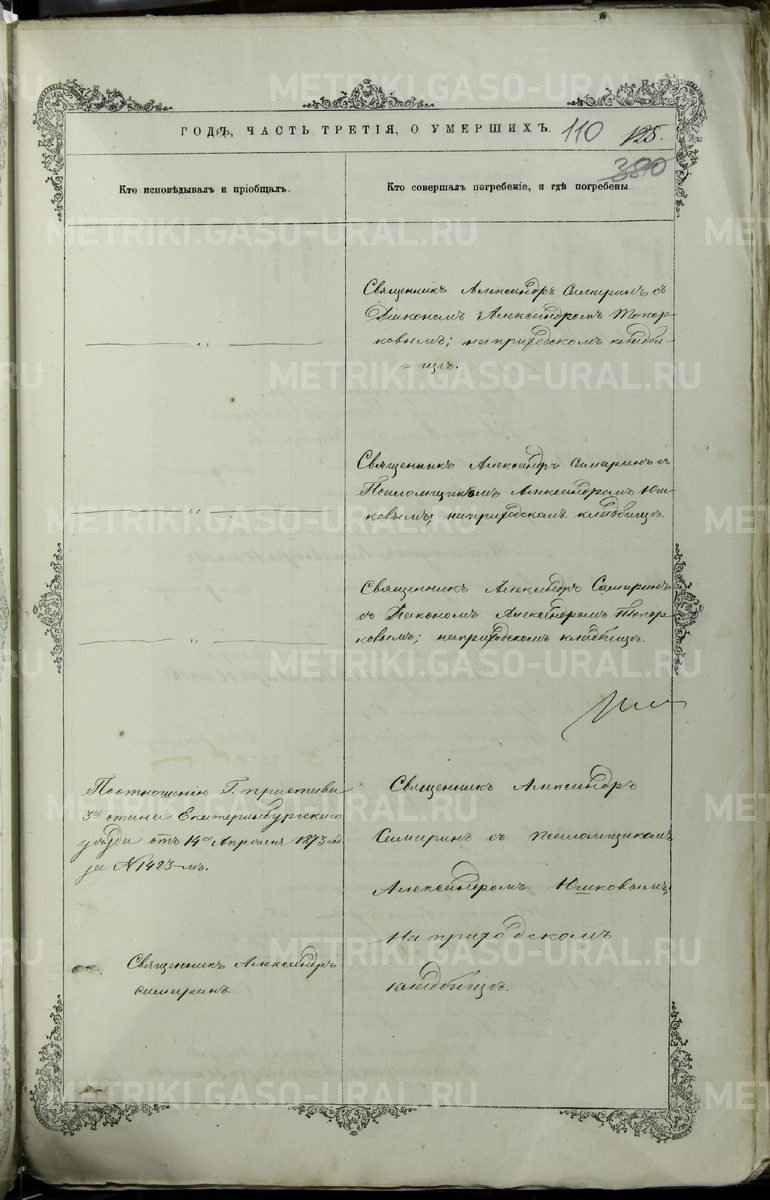 METRIKI.GASO-URAL.RU
ГОДЪ, ЧАСТЬ ТРЕТІЯ, О УМЕРШИХЪ. 110 125.
380
Кто исповѣдывалъ и пріобщалъ.
Кто совершалъ погребеніе, и гдѣ погребены.
Священникъ Александръ Самаринъ съ
Діакономъ Александромъ Топор-
ковымъ; на приходскомъ кладби-
щѣ.
— „ —
Священникъ Александръ Самаринъ съ
Псаломщикомъ Александромъ Юш-
ковымъ; на приходскомъ кладбищѣ.
— „ —
Священникъ Александръ Самаринъ
съ Діакономъ Александромъ Топор-
ковымъ; на приходскомъ кладбищѣ.
— „ —
По отношенію Г. пристава
3го стана Екатеринбургскаго
уѣзда отъ 14го Апрѣля 1873 год
за №1423-мъ.
Священникъ Александръ
Самаринъ съ псаломщикомъ
Александромъ Юшковымъ;
на приходскомъ
кладбищѣ.
Священникъ Александръ
Самаринъ.